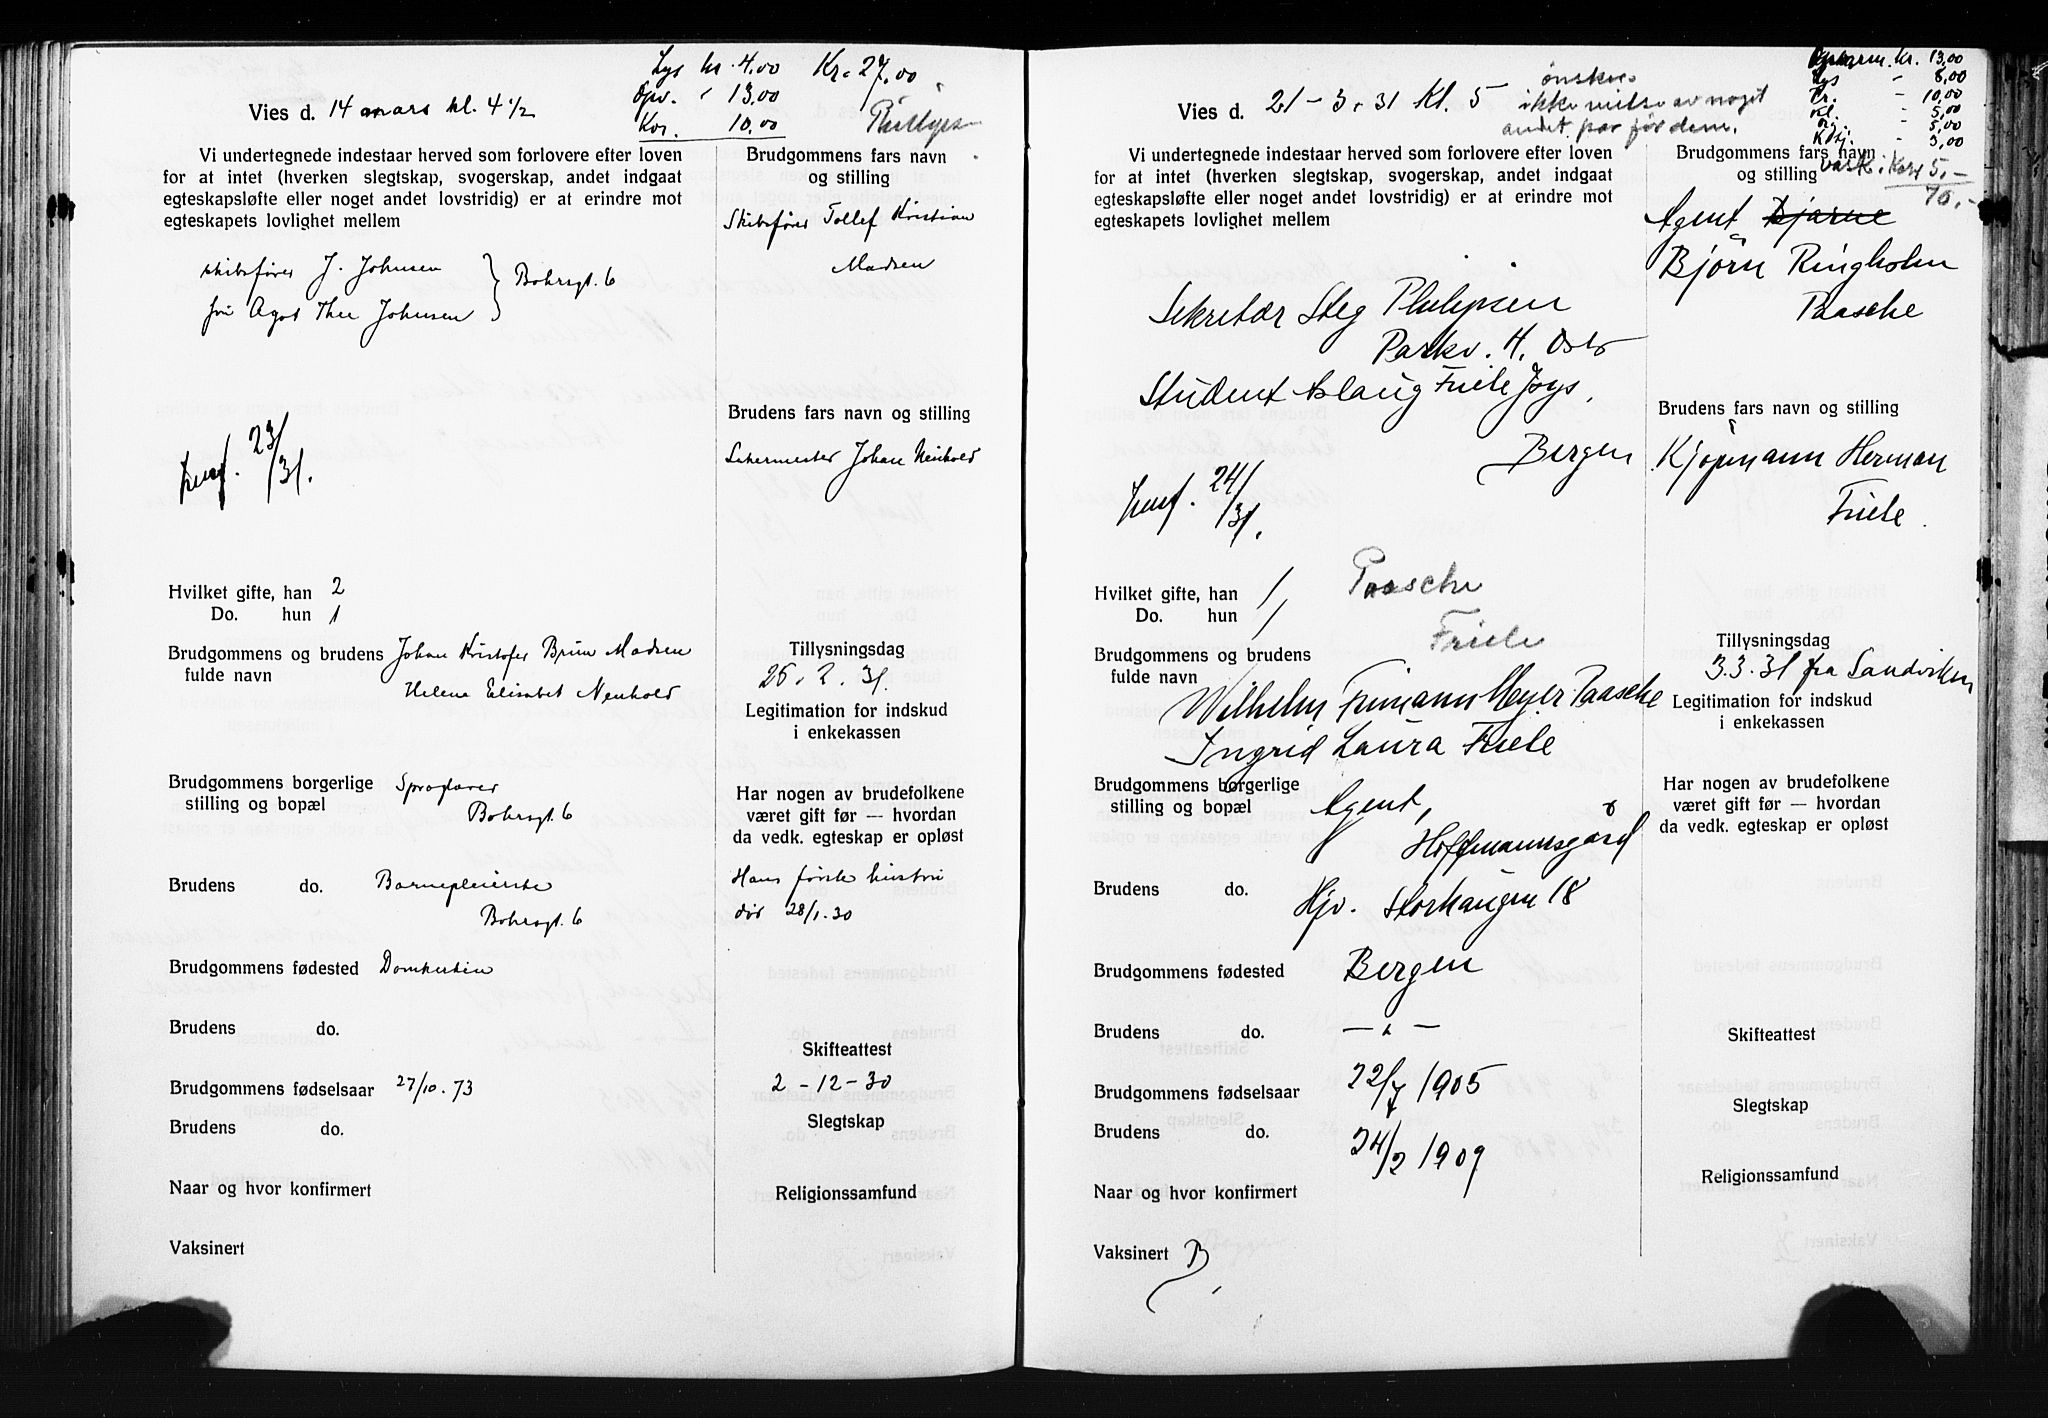 Lys kr. 4.00 Kr. 27.00
Opv. " 13.00
Kor. 10.00
Vies d. 14 mars kl. 4 1/2
Vi undertegnede indestaar herved som forlovere efter loven
for at intet (hverken slegtskap, svogerskap, andet indgaat
egteskapsløfte eller noget andet lovstridig) er at erindre mot
egteskapets lovlighet mellem
skibsfører J. Johnsen
fru Agot Thee Johnsen
Bohrsgt. 6
23/31.
Hvilket gifte, han 2
Do. hun 1
Brudgommens og brudens Johan Kristofer Bruun Madsen
fulde navn Helene Elisabet Neuhold
Brudgommens borgerlige Sproglærer
stilling og bopæl Bohrsgt. 6
Brudens do. Barnepleierske
Bohrsgt. 6
Brudgommens fødested Domkirken
Brudens do.
Brudgommens fødselsaar 27/10.73
Brudens do.
Naar og hvor konfirmert
Vaksinert
Brudgommens fars navn
og stilling
Skibsfører Tollef Kristian
Madsen
Brudens fars navn og stilling
Johan Neuhold
Tillysningsdag
26. 2. 31.
Legitimation for indskud
i enkekassen
Har nogen av brudefolkene
været gift før — hvordan
da vedk. egteskap er opløst
Hans første hustru
død 28/1.30
Skifteattest
2 - 12 - 30
Slegtskap
Religionssamfund
Vies d. 21 - 3. 31 Kl. 5
ønsker
ikke noget
andet par før dem.
Kr. 13,00
Lys " 8,00
Or. " 10,00
Kl. " 5,00
Org. " 5,00
" 5,00
5,-
70,-
Vi undertegnede indestaar herved som forlovere efter loven
for at intet (hverken slegtskap, svogerskap, andet indgaat
egteskapsløfte eller noget andet lovstridig) er at erindre mot
egteskapets lovlighet mellem
Sekretær Steg Philipsen
Parkv. 4. Oslo
Student Aslaug Friele Joys,
Bergen
24/31.
Hvilket gifte, han 1, Paasche
Do. hun 1
Friele
Brudgommens og brudens
fulde navn
Wilhelm Frimann Meyer Paasche
Ingrid Laura Friele
Brudgommens borgerlige
stilling og bopæl Agent,
Hoffmannsgård
Brudens do. Hjv. Storhaugen 18
Brudgommens fødested Bergen
Brudens do. — " —
Brudgommens fødselsaar 22/7 1905
Brudens do. 24/2 1909
Naar og hvor konfirmert
Vaksinert B
Brudgommens fars navn
og stilling
Agent Bjarne
Bjørn Ringholm
Paasche
Brudens fars navn og stilling
Kjøpmann Herman
Friele.
Tillysningsdag
3.3.31 fra Sandviken
Legitimation for indskud
i enkekassen
Har nogen av brudefolkene
været gift før — hvordan
da vedk. egteskap er opløst
Skifteattest
Slegtskap
Religionssamfund